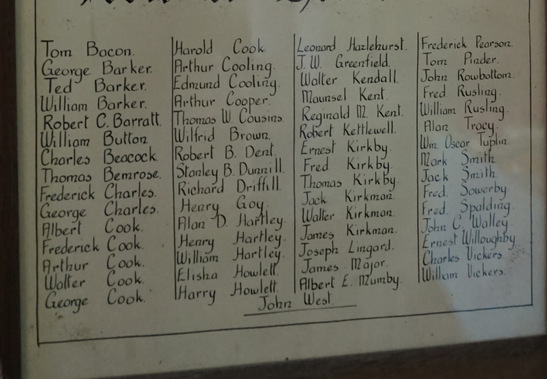 Tom Bacon.
George Barker.
Ted Barker.
William Barker.
Robert C. Barratt.
William Button
Charles Beacock.
Thomas Bemrose.
Frederick Charles.
George Charles.
Albert Cook.
Frederick Cook.
Arthur Cook.
Walter Cook.
George Cook.
Harold Cook
Arthur Cooling.
Edmund Cooling.
Arthur Cooper.
Thomas W. Cousins.
Wilfrid Brown.
Robert B. Dent.
Stanley B. Dunnill.
Richard Driffill.
Henry Goy.
Alan D. Hartley.
Henry Hartley.
William Hartley.
Elisha Howlett.
Harry Howlett.
Leonard Hazlehurst.
J. W. Greenfield.
Walter Kendall.
Maunsel Kent.
Reginald M. Kent.
Robert Kettlewell.
Ernest Kirkby.
Fred Kirkby.
Thomas Kirkby.
Jack Kirkman.
Walter Kirkman.
James Kirkman.
Joseph Lingard.
James Major.
Albert E. Mumby.
Frederick Pearson.
Tom Pinder.
John Rowbottom.
Fred Rusling.
William Rusling.
Alan Tracy.
Wm. Oscar Tuplin
Mark Smith
Jack Smith
Fred. Sowerby
Fred. Spalding.
John C. Walley
Ernest Willoughby
Charles Vickers.
William Vickers.
John West